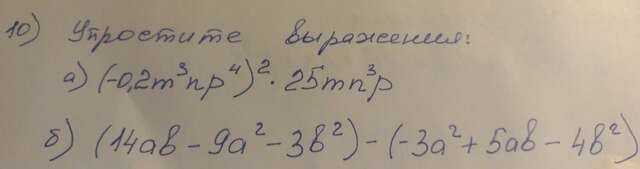 10) Упростите выражения:
а) (-0,2m³np⁴)² · 25mn³p
б) (14ab - 9a² - 3b²) - (-3a² + 5ab - 4b²)